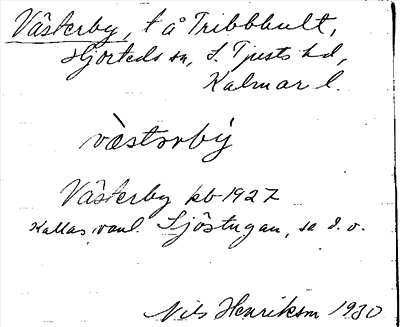 Västerby, t å Tribbhult,
Hjorteds sn, S. Tjusts hd,
Kalmar l.
væ̀stərbý
Västerby kb 1927
Kallas vanl Sjöstugan, se d. o.
Nils Henrikson 1930